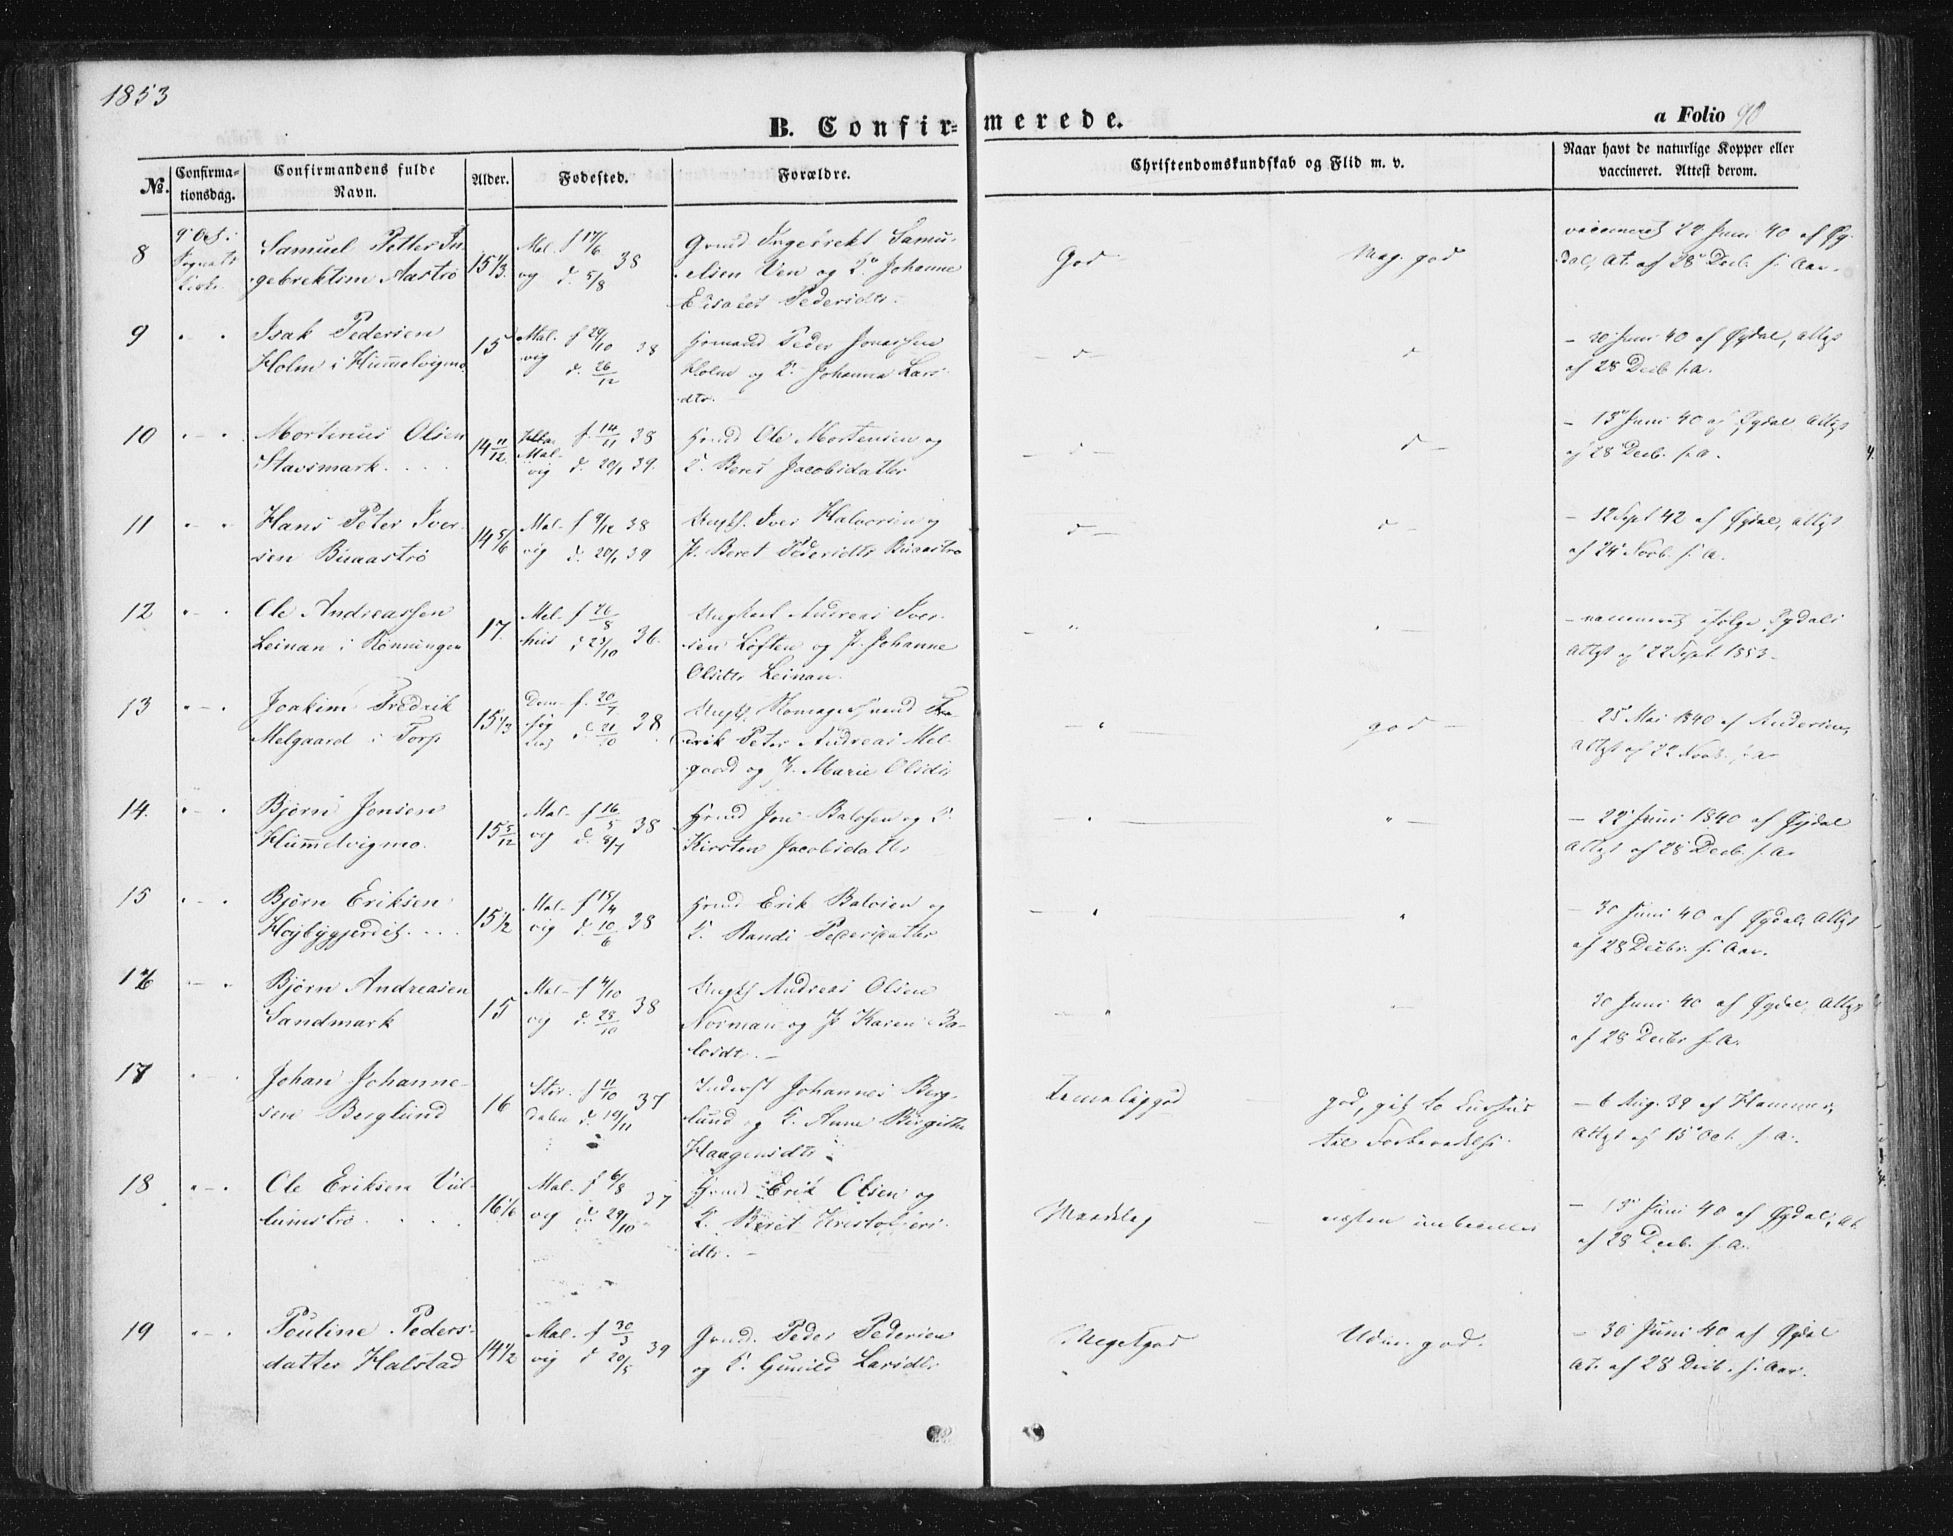 1853
B. Confirmerede.
a Folio 90
No.
Confirmationsdag.
Confirmandens fulde Navn.
Alder.
Fødested.
Forældre.
Christendomskundskab og Flid m. v.
Naar havt de naturlige Kopper eller vaccineret. Attest derom.
8
9 Oct. i
Samuel Petter In-
gebrektsen Aastrø
15 1/3
Mal- f 17/6 38
vig d. 5/8
Gmd Ingebrekt Samu-
elsen Ven og K. Johanne
Elisabet Pedersdtr.
God
Meg. god
vaccineret 22 Juni 40 af Øy-
dal, At. af 28 Decb. s. Aar.
9
Isak Pedersen
Holm i Hummelvigmo
15
Mal- f 29/10 38
vig d. 26/12
Hsmand Peder Jonassen
Holm og K. Johanna Lars-
dtr.
- d -
d
- 30 Juni 40 af Øydal, Attst
af 28 Decb s. a.
10
Mortinus Olsen
Stavsmark
14 11/12
f. 14/11 38
Mal-
vig d. 20/1 39
Hmd Ole Mortensen og
K. Beret Jacobsdatter
- d -
d -
- 13 Juni 40 af Øydal Attst
af 28 Decb. s. a.
11
Hans Peter Iver-
sen Buaastrø
14 5/6
Mal- f 9/12 38
vig d. 20/1 39
Ungk. Iver Halvorsen og
P. Beret Pedersdtr Buaastrø
d -
d -
- 12 Sept 42 af Øydal, attst
af 24 Novb. s. a.
12
Ole Andreassen
Leinan i Rønningen
17
Mel- f 26/8
hus d 23/10 36
Ungkarl Andreas Iver-
sen Løften og P. Johanne
Olsdtr Leinan.
Attst af 22 Sept 1853
13
Joakim Fredrik
Melgaard i Torp
15 1/3
f. 20/7
38
Fre-
derik Peter Andreas Mel-
gaard og P. Marie Olsdtr
god -
25 Mai 1840 af Andersen,
Attst af 22 Novb. s. a.
14.
Bjørn Jonsen
Hummelvigmo.
15 5/12
Mal- f 16/5 38
vig d. 8/7
Hsmd Jon Balssen og K.
Kirsten Jacobsdatter
- 22 Juni 1840 af Øydal
Attst af 28 Decb. s. a.
15
Bjørn Eriksen
Højbygjerdet
15 1/2
Mal- f 15/4
vig d. 10/6 38
Hsmd Erik Balssen og
K. Randi Pedersdatter
- 30 Juni 40 af Øydal, Attst
af 28 Decbr. s. Aar.
16
Bjørn Andreasen
Sandmark
15
Mal- f 4/10
vig d. 28/10 38
Ungk Andreas Olsen
Norman og P. Karen Ba-
lsdtr. -
30 Juni 40 af Øydal, Attst
af 28 Decbr s. a.
17
Johan Johanne-
sen Berglund
16
Stør- f 11/10 37
dalen d. 19/11
Inderst Johannes Berg-
lund og K. Anne Birgitha
Haagensdtr
Temmelig god
god,
til Forberedelse.
- 6 Aug. 39 af Hammer,
Attst af 15 Oct. s. a.
18
Ole Eriksen
16 1/6
Mal- f 6/8 37
vig d. 29/10
Hsmd Erik Olsen og
K. Beret Kristoffers-
dtr. -
Maadelig
- 13 Juni 40 af Øydal, At.
af 28 Decb. s. a.
19
Pouline Peders-
datter Halstad
14 1/2
Mal- f 30/3 39
vig d 20/5
Gmd. Peder Pedersen
og K. Gunild Larsdtr
Meget god
Udm. god.
- 30 Juni 40 af Øydal
At. af 28 Decb. s. Aar.